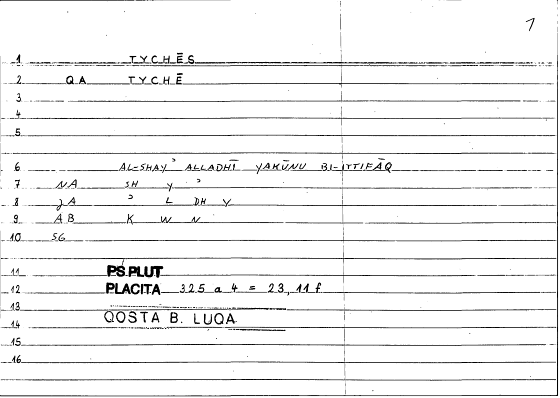 7
1 TYCHĒS
2 QA TYCHĒ
3
4
5
6 AL-SHAYʾ ALLADHĪ YAKŪNU BI-ITTIFĀQ
7 NA SH Y ʾ
8 JA ʾ L DH Y
9 AB K W N
10 SG
11 PS.PLUT
12 PLACITA 325 a 4 = 23, 11 f
13
14 QOSTA B. LUQA
15
16